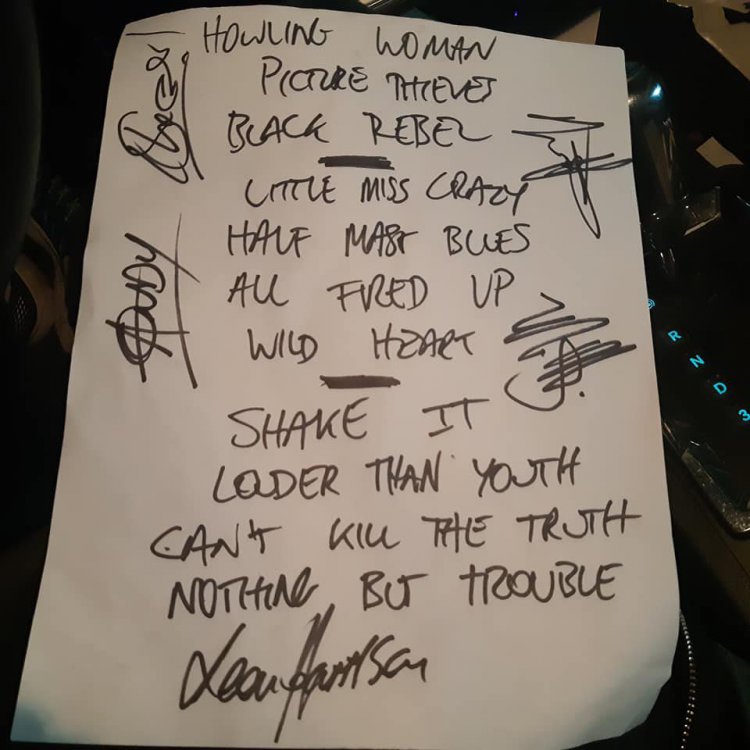 HOWLING WOMAN
PICTURE THIEVES
BLACK REBEL
LITTLE MISS CRAZY
HALF MAST BLUES
ALL FIRED UP
WILD HEART
SHAKE IT
LOUDER THAN YOUTH
CAN'T KILL THE TRUTH
NOTHING BUT TROUBLE
R
N
D
3